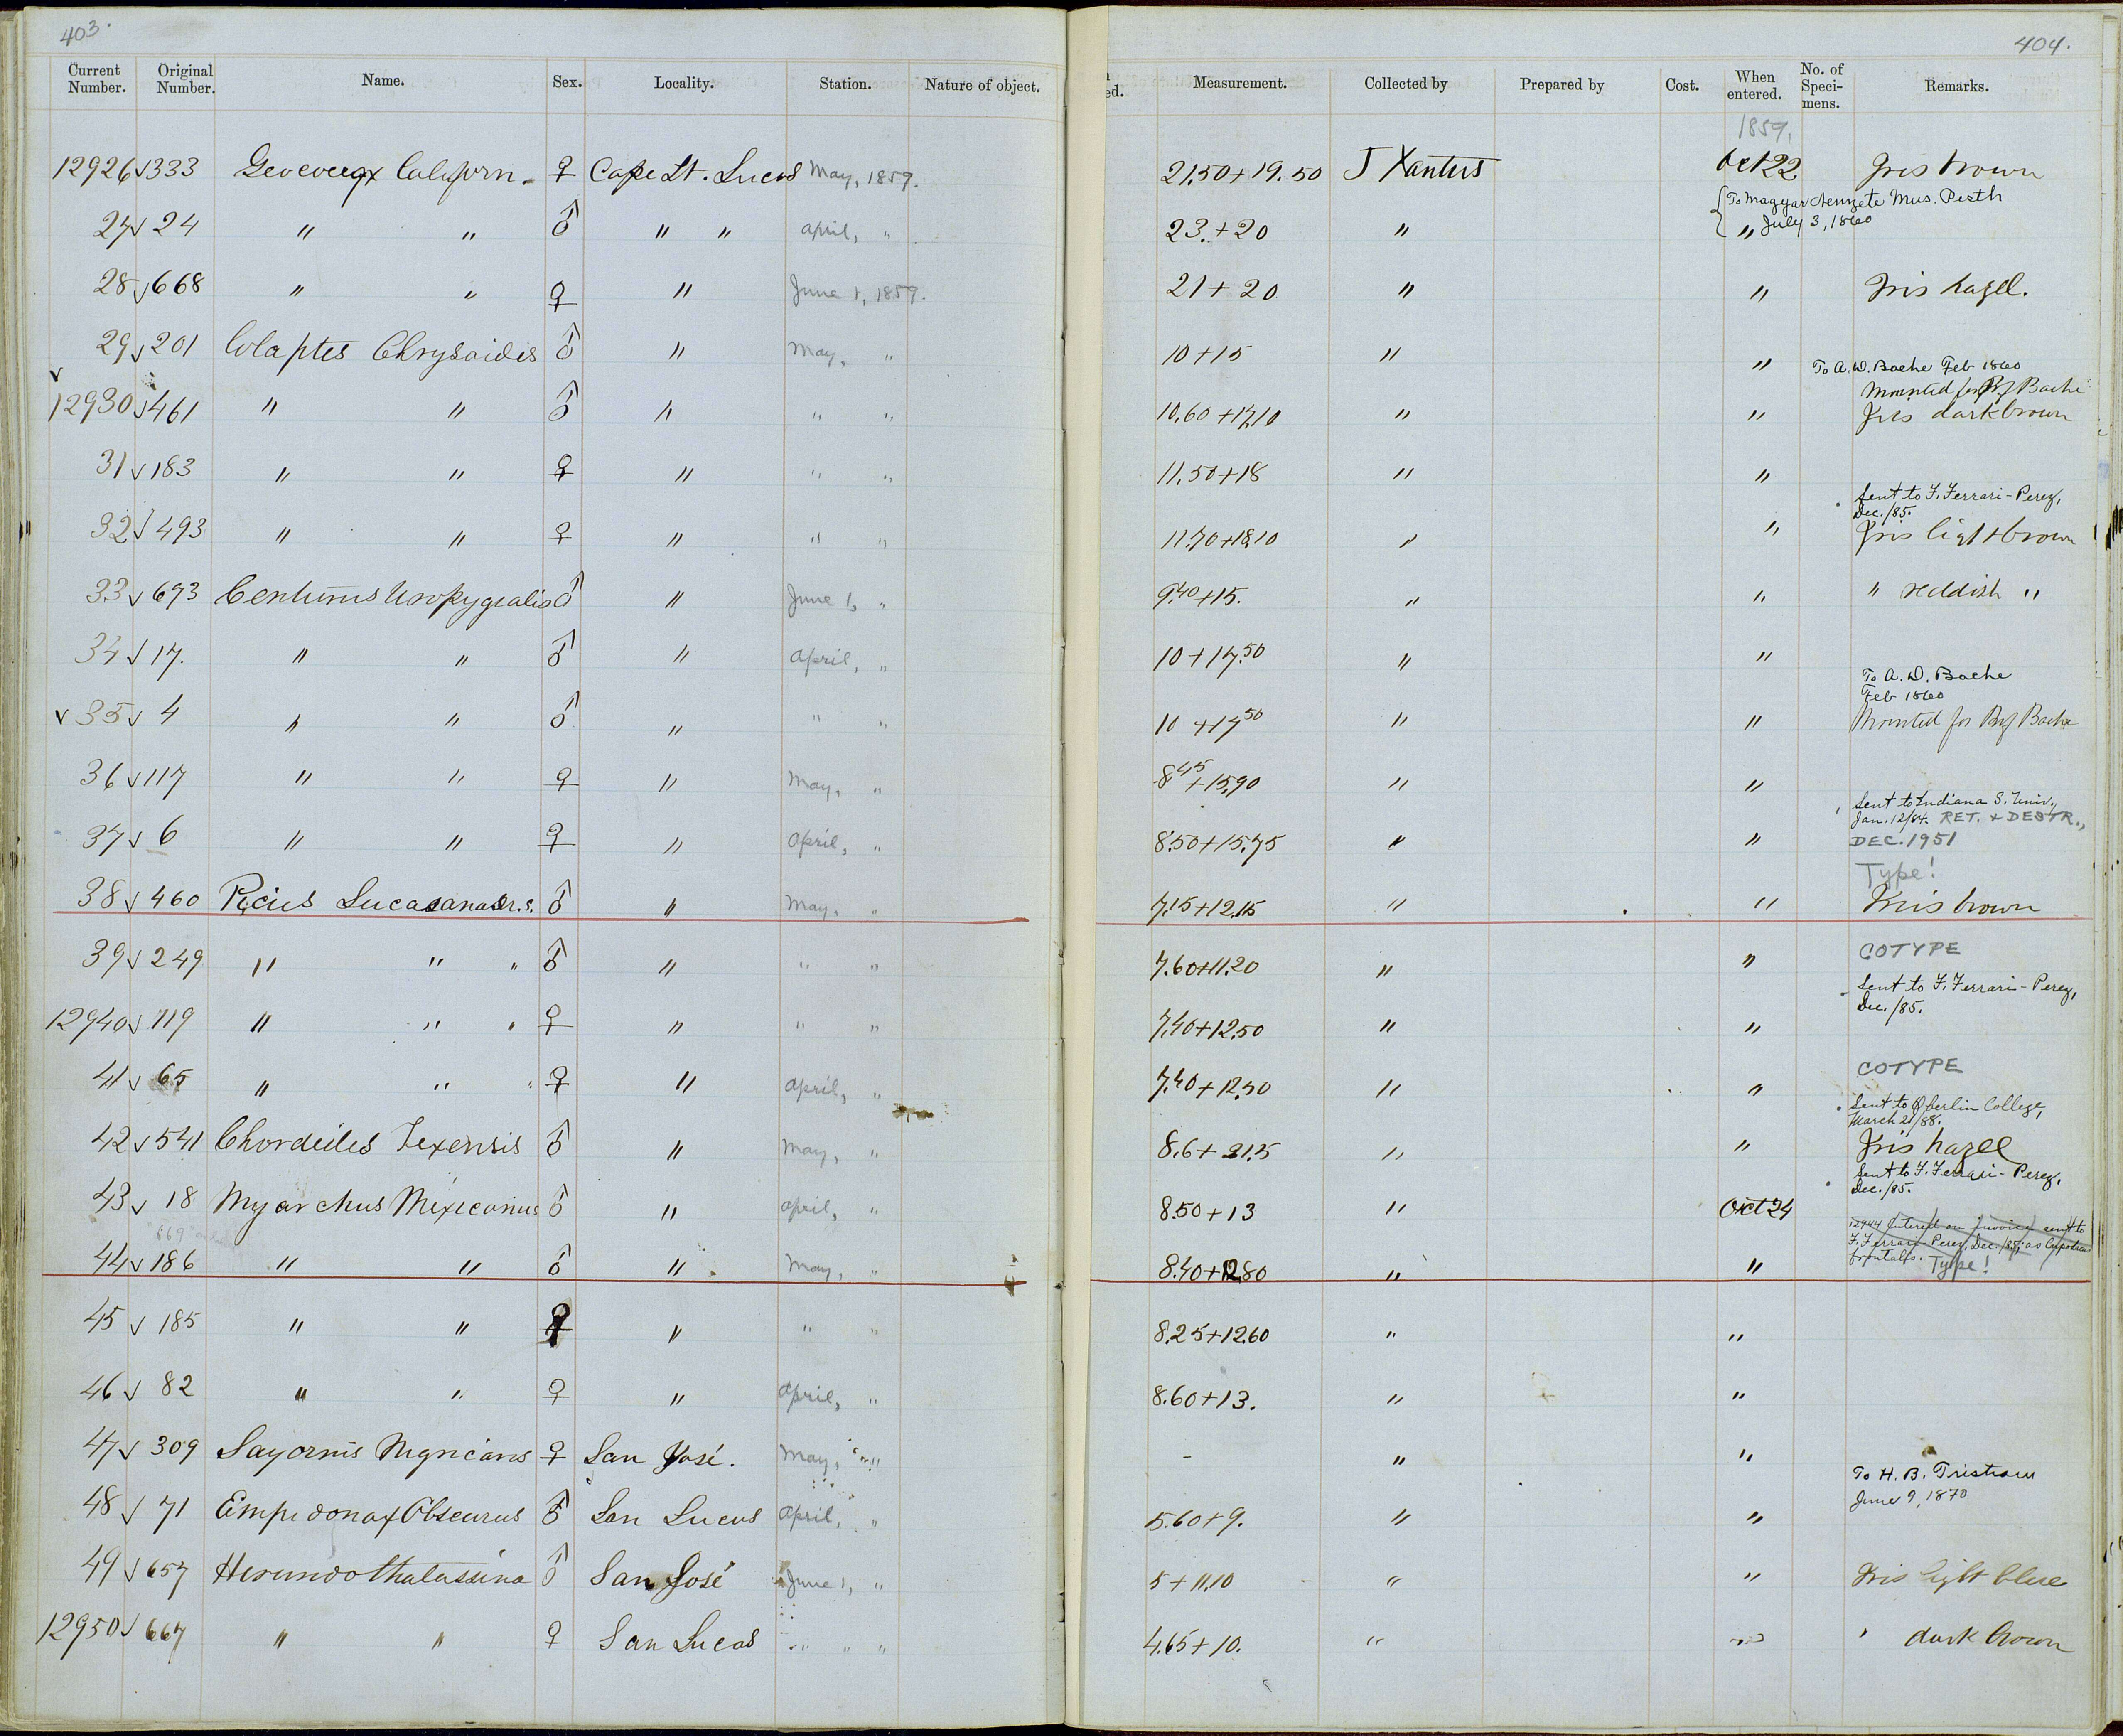 403.
404.
Current Number. Original Number. Name. Sex. Locality. Station. Nature of object. Measurement. Collected by Prepared by Cost. When entered. No. of Speci-mens. Remarks.
1859.
12926 √ 333 Geococcyx Californ. ♀ Cape St. Lucas May, 1859. 21.50 + 19.50 J Xantus Oct 22 Iris brown
To Magyar Nemzete Mus. Pesth
27 √ 24 " " ♂ " " April, " 23. + 20 " " July 3, 1860
28 √ 668 " " ♀ " June 1, 1859. 21 + 20 " " Iris hazel.
29 √ 201 Colaptes Chrysoides ♂ " May, " 10 + 15 " " To A. D. Bache Feb 1860
Mounted for Prf Bache
√ 12930 √ 461 " " ♂ " " " 10,60 + 17,10 " " Iris dark brown
31 √ 183 " " ♀ " " " 11,50 + 18 " "
Sent to F. Ferrari-Perez,
Dec./85.
32 √ 493 " " ♀ " " " 11.70 + 18,10 " " Iris light brown
33 √ 693 Centurus Uropygialis ♂ " June 1, " 9.40 + 15. " " " reddish "
34 √ 17. " " ♂ " April, " 10 + 17.50 " "
To A. D. Bache
Feb 1860
√ 35 √ 4 " " ♂ " " " 10 + 17 50 " " Mounted for Prf Bache
36 √ 117 " " ♀ " May, " 8 45 + 15,90 " "
Sent to Indiana S. Univ.,
Jan. 12/84. RET. + DESTR.,
37 √ 6 " " ♀ " April, " 8.50 + 15.75 " " DEC. 1951
Type!
38 √ 460 Picus Lucasanus ♂ " May, " 7,15 + 12,15 " " Iris brown
39 √ 249 " " " ♂ " " " 7.60 + 11.20 " " COTYPE
Sent to F. Ferrari-Perez,
Dec./85.
12940 √ 119 " " " ♀ " " " 7,40 + 12,50 " "
COTYPE
41 √ 65 " " " ♀ " April, " 7,40 + 12,50 " "
Sent to Oberlin College,
March 21/88.
42 √ 541 Chordeiles Texensis ♂ " May, " 8.6 + 21.5 " " Iris hazel
Sent to F. Ferrari-Perez,
Dec./85.
43 √ 18 Myarchus Mexicanus ♂ " April, " 8.50 + 13 " Oct 24
669
12944 Entered on Invoice sent to
F. Ferrari Perez, Dec./85, as
frontalis. Type!
44 √ 186 " " ♂ " May, " 8.40 + 12,80 " "
45 √ 185 " " ♀ " " " 8.25 + 12.60 " "
46 √ 82 " " ♀ " April, " 8.60 + 13. " "
47 √ 309 Sayornis Nigricans ♀ San José. May, " - " "
To H. B. Tristram
June 9, 1870
48 √ 71 Empidonax Obscurus ♂ San Lucas April, " 5.60 + 9. " "
49 √ 657 Hirundo thalassina ♂ San José June 1, " 5 + 11,10 " " Iris light blue
12950 √ 667 " " ♀ San Lucas " " " 4.65 + 10. " " " dark brown